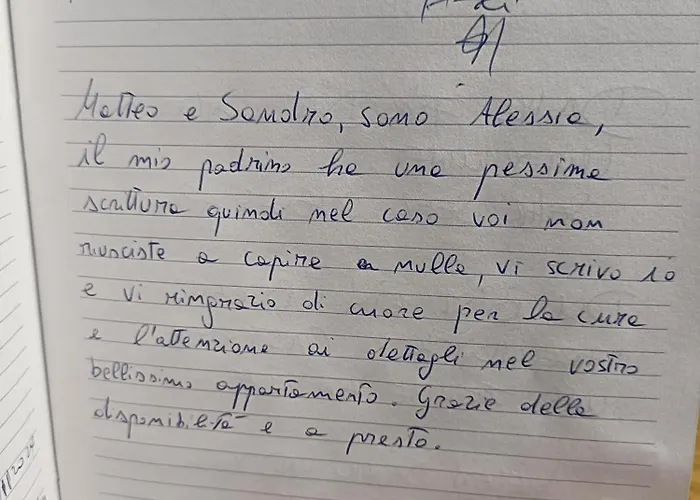 Matteo e Sandro, sono Alessia,
il mio padrino ha una pessima
scrittura quindi nel caso voi non
riusciste a capire nulla, vi scrivo io
e vi ringrazio di cuore per la cura
e l'attenzione ai dettagli nel vostro
bellissimo appartamento. Grazie della
disponibilità e a presto.